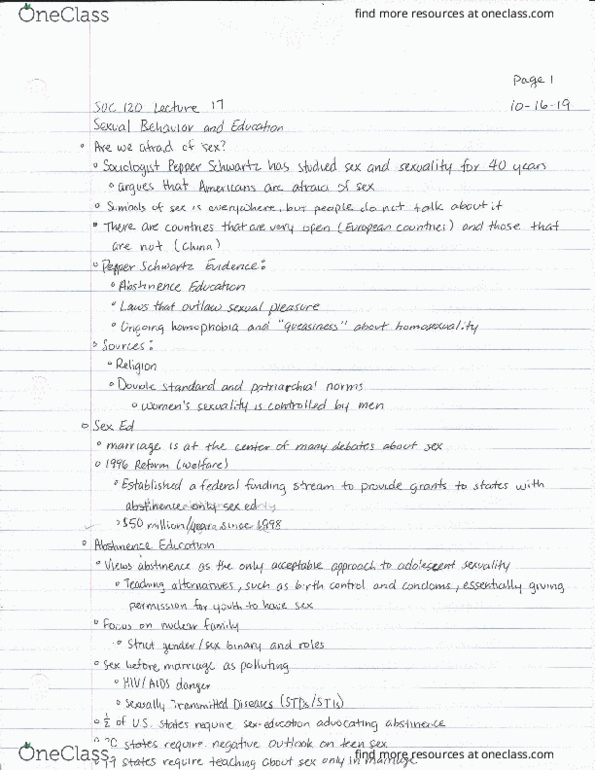 OneClass find more resources at oneclass.com
Page 1
SOC 120 Lecture 17 10-16-19
Sexual Behavior and Education
Are we afraid of sex?
Sociologist Pepper Schwartz has studied sex and sexuality for 40 years
argues that Americans are afraid of sex
Symbols of sex is everywhere, but people do not talk about it
There are countries that are very open (European countries) and those that
are not (China)
Pepper Schwartz Evidence:
Abstinence Education
Laws that outlaw sexual pleasure
Ongoing homophobia and "queasiness" about homosexuality
Sources:
Religion
Double standard and patriarchal norms
women's sexuality is controlled by men
Sex Ed
marriage is at the center of many debates about sex
1996 Reform (welfare)
Established a federal funding stream to provide grants to states with
abstinence only sex ed
$50 million/year since 1998
Abstinence Education
Views abstinence as the only acceptable approach to adolescent sexuality
Teaching alternatives, such as birth control and condoms, essentially giving
permission for youth to have sex
Focus on nuclear family
Strict gender/sex binary and roles
Sex before marriage as polluting
HIV/AIDS danger
Sexually Transmitted Diseases (STDs/STIs)
½ of U.S. states require sex-education advocating abstinence
states require negative outlook on teen sex
OneClass find more resources at oneclass.com
states require teaching about sex only in marriage